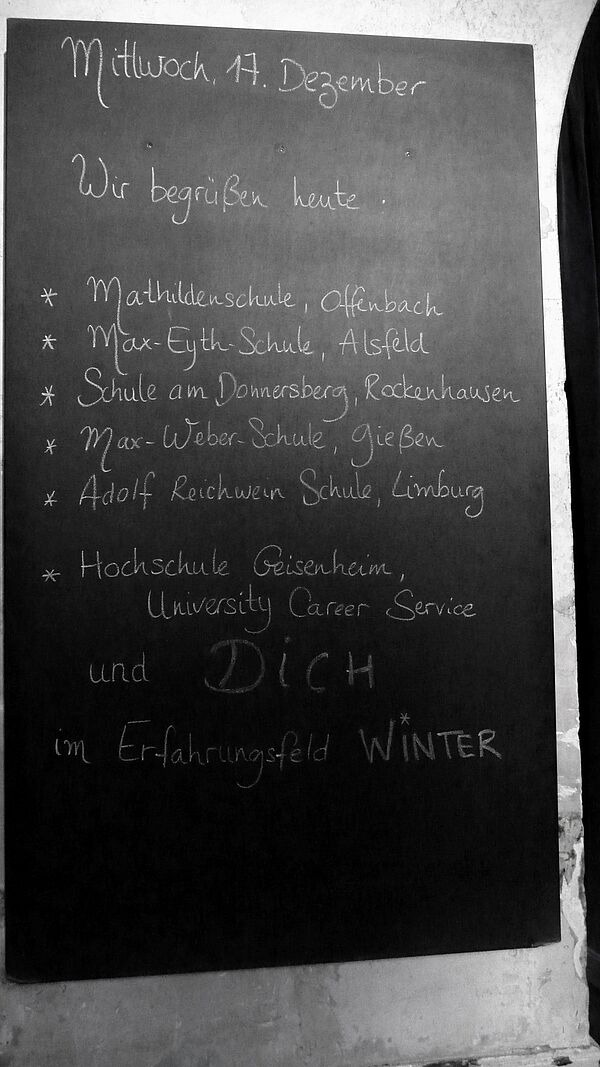 Mittwoch, 17. Dezember
Wir begrüßen heute :
* Mathildenschule, Offenbach
* Max-Eyth-Schule, Alsfeld
* Schule am Donnersberg, Rockenhausen
* Max-Weber-Schule, Gießen
* Adolf Reichwein Schule, Limburg
* Hochschule Geisenheim,
University Career Service
und DiCH
im Erfahrungsfeld WiNTER